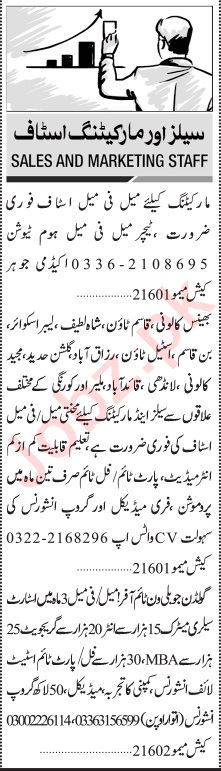 سیلز اور مارکیٹنگ اسٹاف
SALES AND MARKETING STAFF
مارکیٹنگ کیلئے میل فی میل اسٹاف فوری
ضرورت، ٹیچر میل فی میل ہوم ٹیوشن
0336-2108695 اکیڈمی جوہر
کیش میمو 21601....................
بھینس کالونی، قاسم ٹاؤن، شاہ لطیف، لیبر اسکوائر،
بن قاسم، اسٹیل ٹاؤن، رزاق آباد، گلشن حدید، مجید
کالونی، لانڈھی، قائد آباد، ملیر اور کورنگی کے مختلف
علاقوں سے سیلز اینڈ مارکیٹنگ کیلئے محنتی میل/فی میل
اسٹاف کی فوری ضرورت ہے، تعلیم قابلیت کم از کم
انٹرمیڈیٹ، پارٹ ٹائم/فل ٹائم صرف تین ماہ میں
پروموشن، فری میڈیکل اور گروپ انشورنس کی
سہولت CV واٹس اپ 0322-2168296
کیش میمو 21601....................
گولڈن جوبلی ون ٹائم آفر! میل/فی میل 3 ماہ میں اسٹارٹ
سیلری میٹرک 15 ہزار سے انٹر 20 ہزار سے گریجویٹ 25
ہزار سے MBA، 30 ہزار سے فل/پارٹ ٹائم اسٹیٹ
لائف انشورنس، کمپنی کا تجربہ، میڈیکل، 50 لاکھ گروپ
انشورنس (اتوار اوپن) 03363156599، 03002226114
کیش میمو 21602....................
jobz.pk